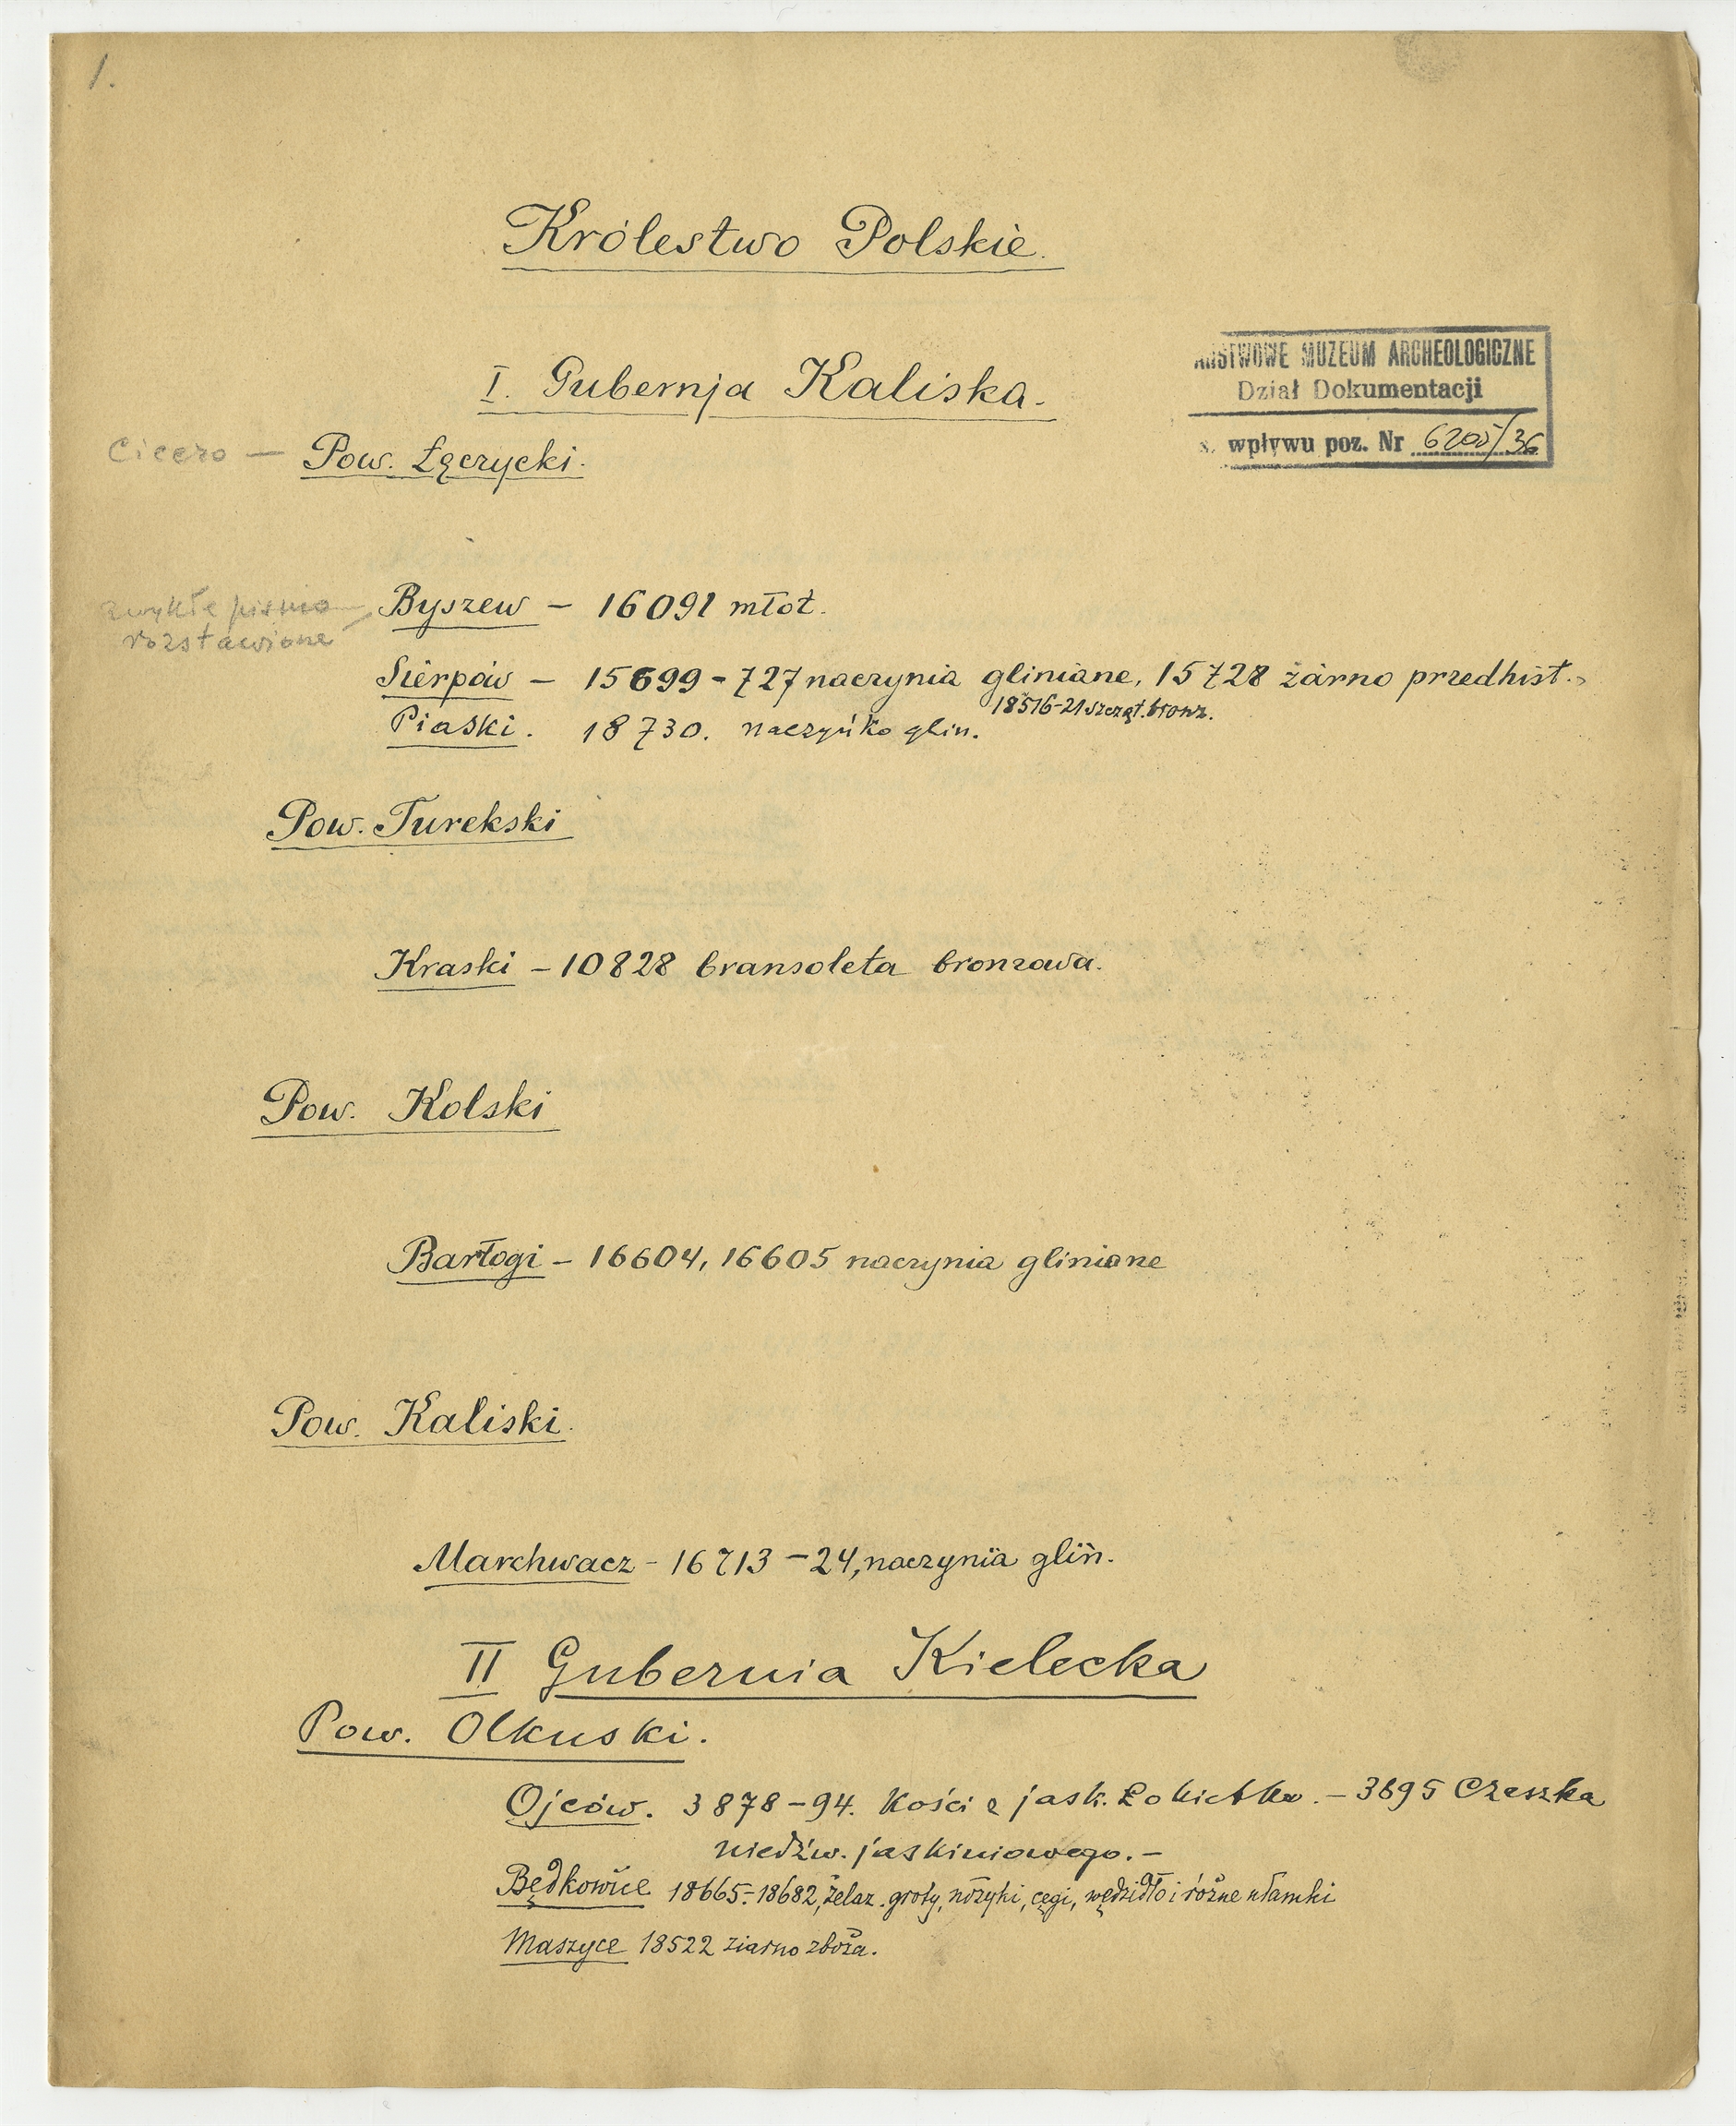 1.
Królestwo Polskie.
I. Gubernja Kaliska.
ŃSTWOWE MUZEUM ARCHEOLOGICZNE
Dział Dokumentacji
s. wpływu poz. Nr 6205/36
Cicero — Pow. Łęczycki.
Byszew — 16091 młot.
zwykłe pismo
rozstawione
Sierpów — 15699-727 naczynia gliniane, 15728 żarno przedhist.,
18516-21 szcząt. bronz.
Piaski. 18730. naczyńko glin.
Pow. Turekski
Kraski — 10828 bransoleta bronzowa.
Pow. Kolski
Barłogi — 16604, 16605 naczynia gliniane
Pow. Kaliski.
Marchwacz - 16713 — 24, naczynia glin.
II Gubernia Kielecka
Pow. Olkuski.
Ojców. 3878-94. Kości z jask. Łokietka. — 3895 Czeszka
niedźw. jaskiniowego. —
Będkowice 18665-18682, żelaz. groty, nożyki, cęgi, wędzidło i różne ułamki
Maszyce 18522 ziarno zboża.